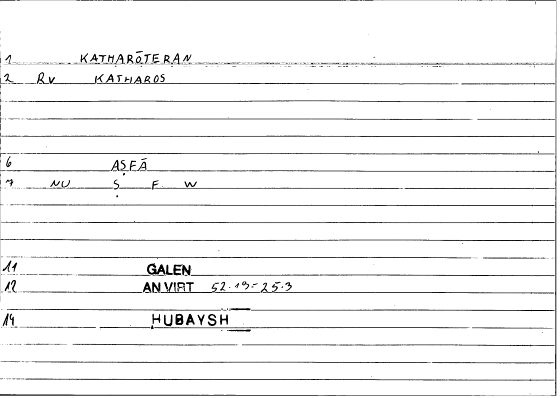 1 KATHARŌTERAN
2 RV KATHAROS
6 AṢFĀ
7 NU Ṣ F W
11 GALEN
12 AN VIRT 52.19-25.3
14 HUBAYSH